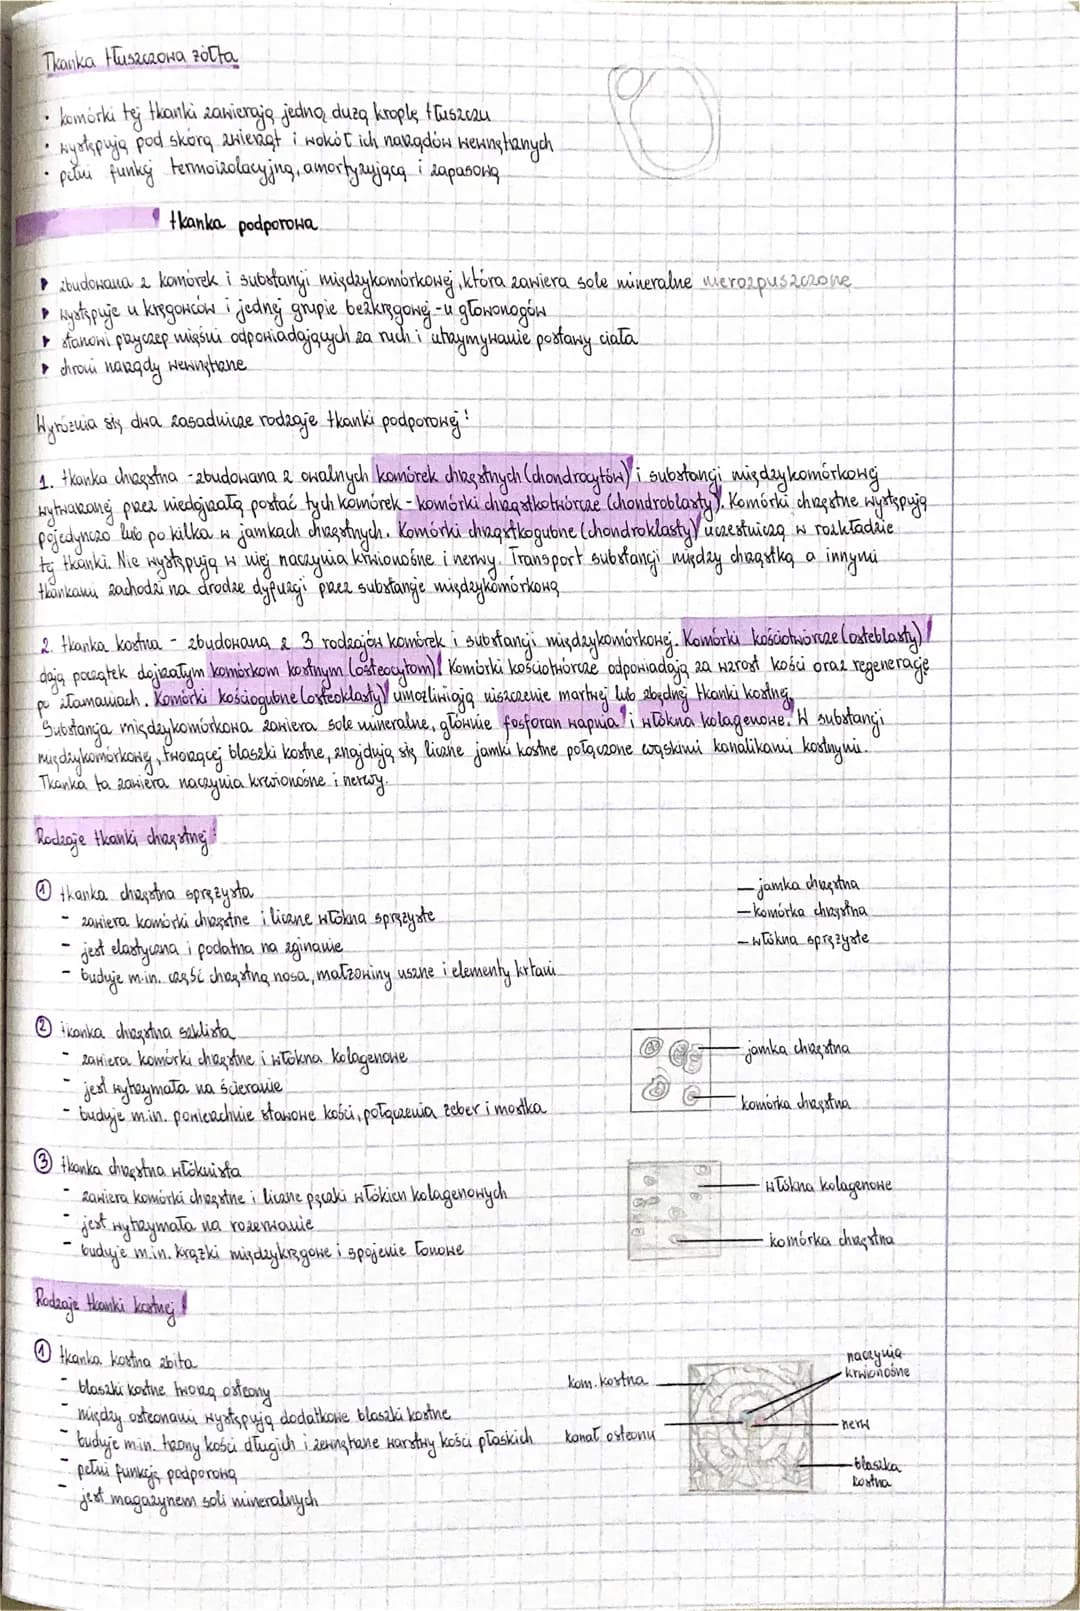 Tkanka tłuszczowa żółta
· komórki tej tkanki zawierają jedną dużą kroplę tłuszczu
· występują pod skórą zwierząt i wokół ich narządów wewnętrznych
· pełni funkcję termoizolacyjną, amortyzującą i zapasową
tkanka podporowa
▸ zbudowana z komórek i substancji międzykomórkowej, która zawiera sole mineralne nierozpuszczone
▸ występuje u kręgowców i jednej grupie bezkręgowej - u głowonogów
▸ stanowi przyczep mięśni odpowiadających za ruch i utrzymywanie postawy ciała
▸ chroni narządy wewnętrzne
Wyróżnia się dwa zasadnicze rodzaje tkanki podporowej:
1. tkanka chrzęstna - zbudowana z owalnych komórek chrzęstnych (chondrocytów) i substancji międzykomórkowej
wytwarzanej przez niedojrzałą postać tych komórek - komórki chrząstkotwórcze (chondroblasty). Komórki chrzęstne występują
pojedynczo lub po kilka w jamkach chrzęstnych. Komórki chrząstkogubne (chondroklasty) uczestniczą w rozkładzie
tej tkanki. Nie występują w niej naczynia krwionośne i nerwy. Transport substancji między chrząstką a innymi
tkankami zachodzi na drodze dyfuzji przez substancję międzykomórkową
2. tkanka kostna - zbudowaną z 3 rodzajów komórek i substancji międzykomórkowej. Komórki kościotwórcze (osteblasty)
dają początek dojrzałym komórkom kostnym (osteocytom). Komórki kościotwórcze odpowiadają za wzrost kości oraz regenerację
po złamaniach. Komórki kościogubne (osteoklasty) umożliwiają niszczenie martwej lub zbędnej tkanki kostnej.
Substancja międzykomórkowa zawiera sole mineralne, głównie fosforan wapnia i włókna kolagenowe. W substancji
międzykomórkowej, tworzącej blaszki kostne, znajdują się liczne jamki kostne połączone wąskimi kanalikami kostnymi.
Tkanka ta zawiera naczynia krwionośne i nerwy.
Rodzaje tkanki chrzęstnej:
① tkanka chrzęstna sprężysta
- zawiera komórki chrzęstne i liczne włókna sprężyste
- jest elastyczna i podatna na zginanie
- buduje m.in. część chrzęstną nosa, małżowiny uszne i elementy krtani
— jamka chrzęstna
— komórka chrzęstna
— włókna sprężyste
② tkanka chrzęstna szklista
- zawiera komórki chrzęstne i włókna kolagenowe
- jest wytrzymała na ścieranie
- buduje m.in. powierzchnie stawowe kości, połączenia żeber i mostka
jamka chrzęstna
komórka chrzęstna
③ tkanka chrzęstna włóknista
- zawiera komórki chrzęstne i liczne pęczki włókien kolagenowych
- jest wytrzymała na rozerwanie
- buduje m.in. krążki międzykręgowe i spojenie łonowe
włókna kolagenowe
komórka chrzęstna
Rodzaje tkanki kostnej
① tkanka kostna zbita
- blaszki kostne tworzą osteony
- między osteonami występują dodatkowe blaszki kostne
- buduje m.in. trzony kości długich i zewnętrzne warstwy kości płaskich
- pełni funkcję podporową
- jest magazynem soli mineralnych
kom. kostna
kanał osteonu
naczynia
krwionośne
nerw
blaszka
kostna